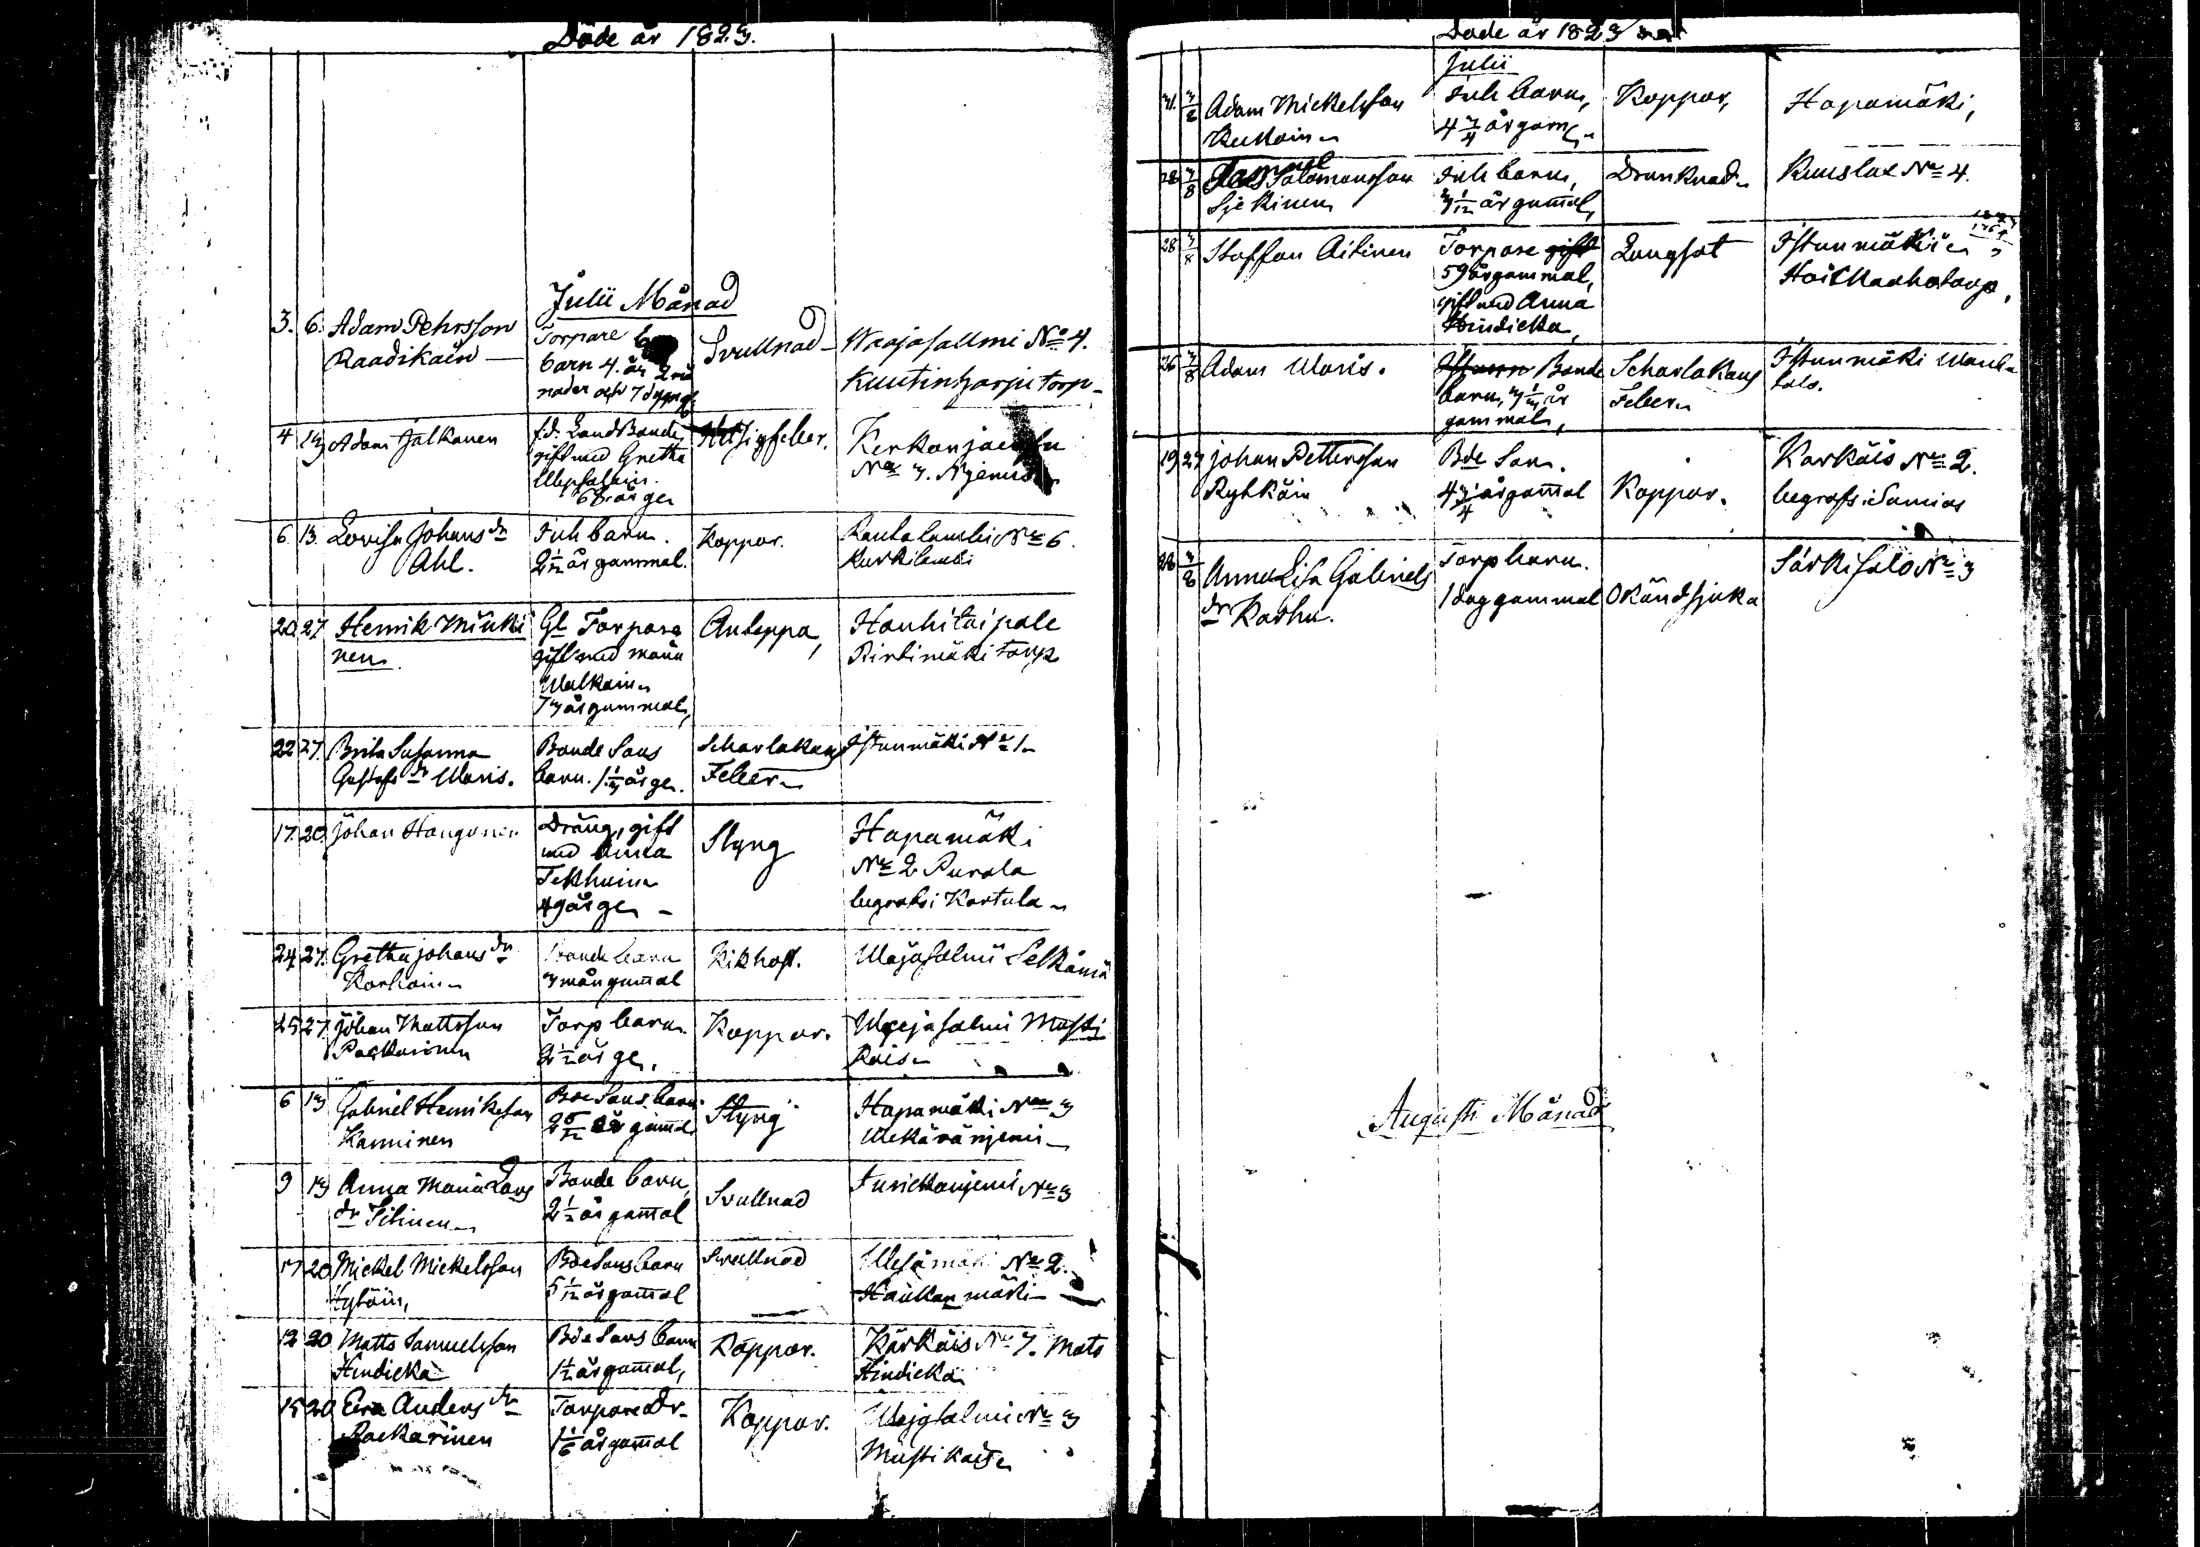 Döde år 1823.
Julii Månad
3. 6. Adam Pehrsson
Raadikain
Torpare
barn 4. år 2 må
nader och 7 dygn g.
Svullnad
Waajasallmi No 4.
Kuutinharju torp
4 13 Adam Jalkanen
f.d. Land Bonde
gift med Gretha
Uhpsalain
68 år ge
Hitsigfeber.
No 3. Njemis
6 13. Lovisa Johans dr
Ahl.
Inh barn.
2 1/2 år gammal.
Koppor.
Rautalambi No 6.
Kurkilambi
20 27 Henrik Minki
nen
Gl Torpare
gift med Maria
Walkain
73 år gammal,
Andteppa,
Hanhitaipale
Rintimäki torp
22 27. Brita Susanna
Gustafs dr Waris.
Bonde Sons
barn. 1 1/3 år ge.
Scharlakans
Feber
Istunmäki No 1
17. 20. Johan Hangonen
Dräng, gift
med Anna
Tekhuin
49 år ge
Styng
Hapamäki
No 2 Purola
begrafs i Kartula
24 27. Gretha Johans dr
Korhoin
Bonde barn
3 mån gamal
Kikhost.
Wajasalmi Selkämä
25 27 Johan Mattsson
Packarinen
Torp barn.
2 1/2 år ge.
Koppor.
Waajasalmi Musti
kais
6 13 Gabriel Henriksson
Kanninen
Bde Sons barn
2 5/12 år gamal
Styng
Hapamäki No 3
Wekäränjemi
9 13 Anna Maria Lars
dr Titinen
Bonde barn,
2 1/2 år gamal
Svullnad
No 3
17 20 Mickel Mickelsson
Hytöin,
Bde Sons barn
5 1/12 år gamal
Svullnad
Wesamäki No 2.
Haukkanmäki
12 20 Matts Samuelsson
Hindicka
Bde Sons barn
1 1/2 år gamal,
Koppor.
Kärkäis No 7. Mats
Hindicka
15 20 Eva Anders dr
Packarinen
Torpare Dr
1 1/6 år gamal
Koppor.
Wajasalmi No 3
Mustikais
Döde år 1823
Julii
31. 3/8 Adam Mickelsson
Kukkoin
Inh barn,
4 3/4 år gam
Koppor,
Hapamäki,
28 3/8 Salomonsson
Sjekinen
Inh barn,
3 1/12 år gamal,
Drunknad
Kuuslax No 4.
28 3/8 Staffan Aitinen
Torpare gift
59 år gammal,
gift med Anna
Hindicka,
Langsot
Istunmäki
torp,
26 3/8 Adam Waris.
Bonde
barn, 3 1/3 år
gammal,
Scharlakans
Feber
Istunmäki Wanha
talo.
19 27 Johan Pettersson
Rytköin
Bde Son.
4 3/4 år gamal
Koppor.
Karkäis No 2.
begrafs i Samias
28 3/8 Anna Lisa Gabriels
dr Karhu.
Torp barn.
1 dag gammal
Okänd sjuka
Särkisalo No 3
Augusti Månad